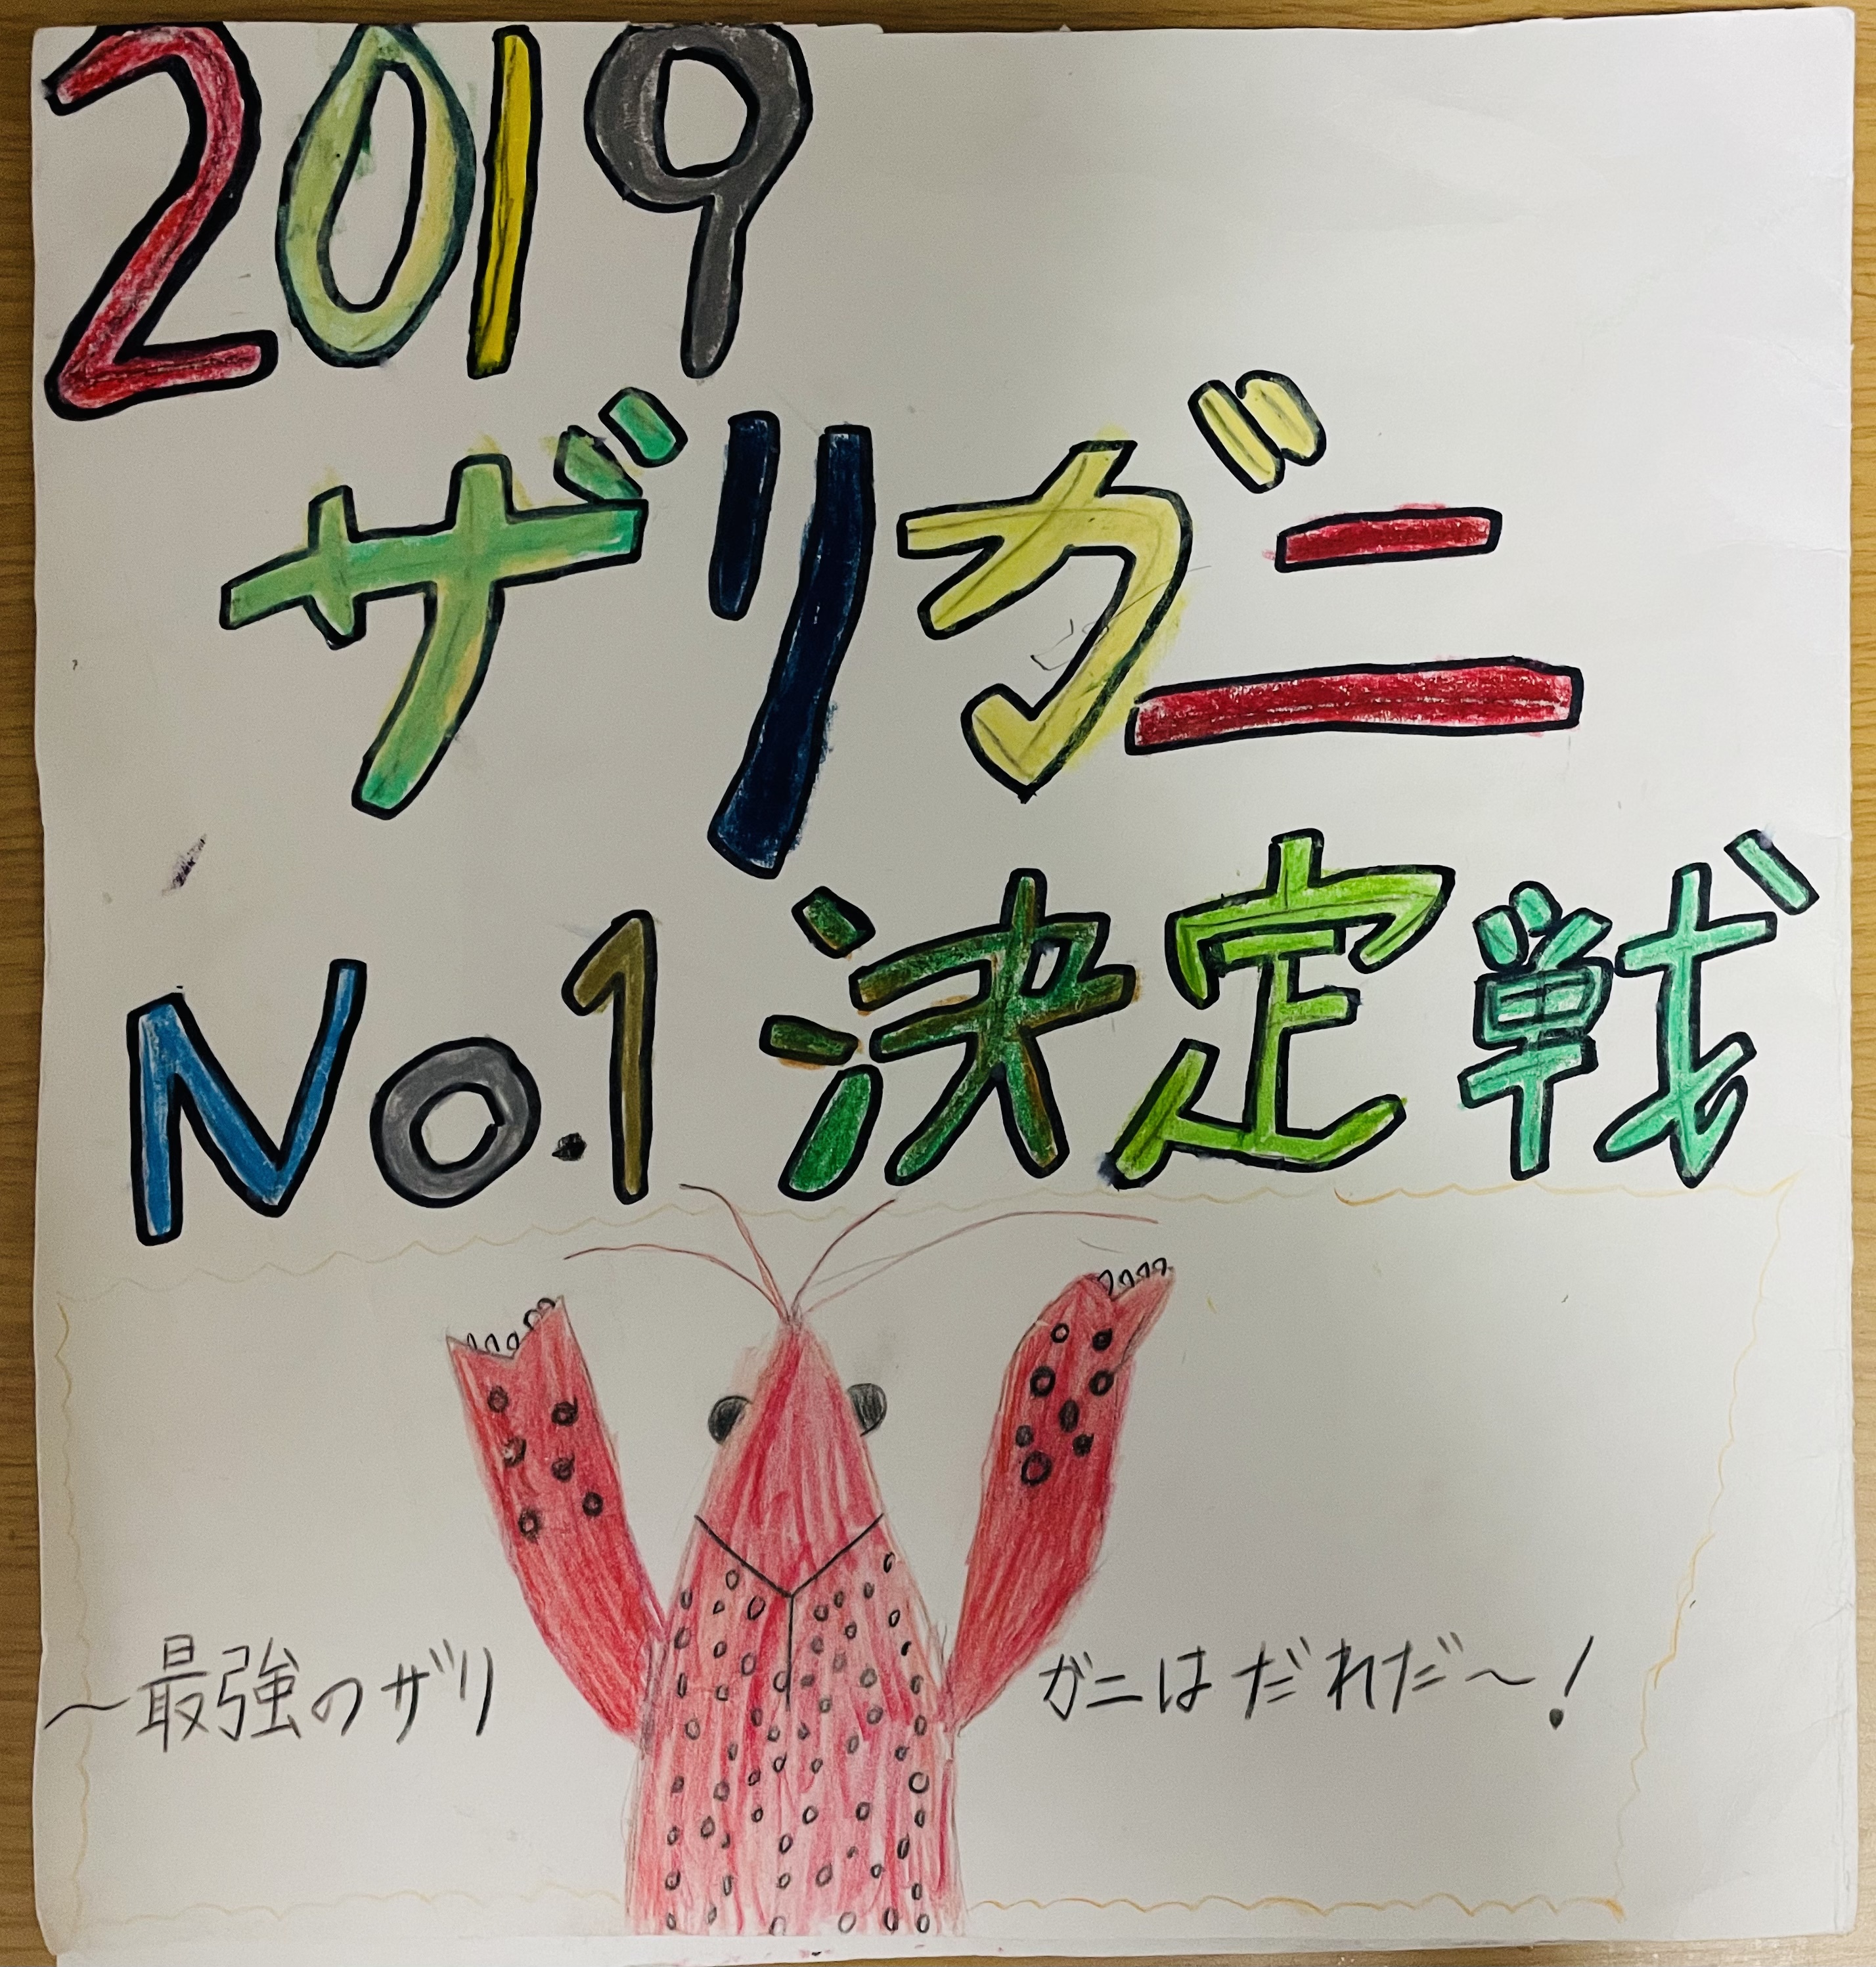 2019
ザリガニ
No.1 決定戦
～最強のザリガニはだれだ～!